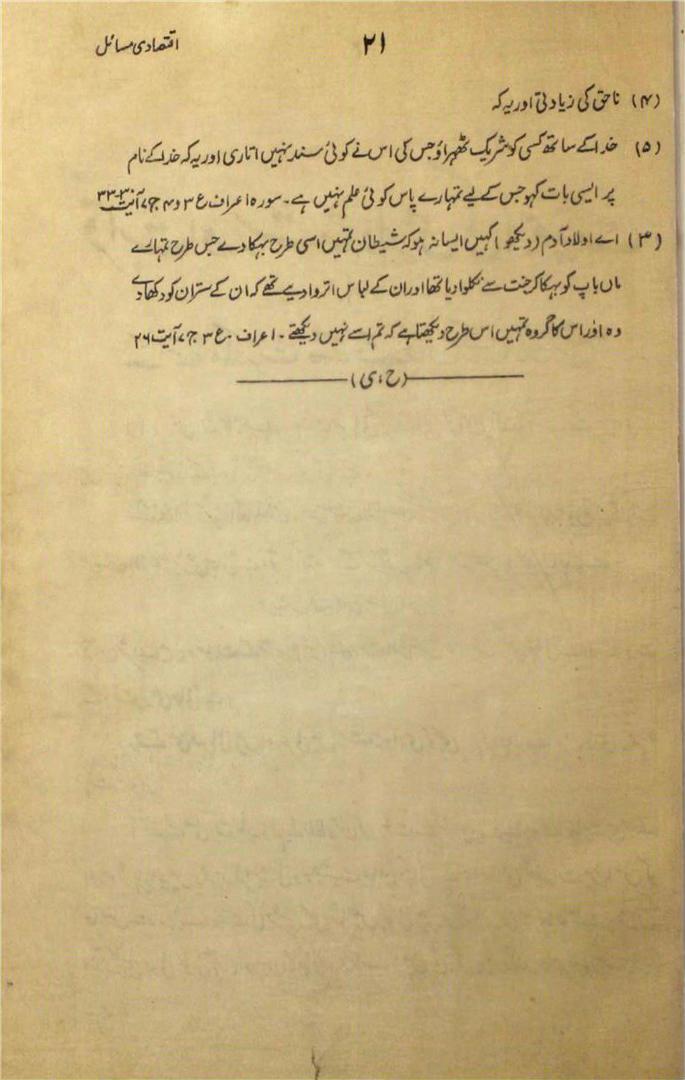 اقتصادی مسائل ۲۱
(۴) ناحق کی زیادتی اور یہ کہ
(۵) خدا کے ساتھ کسی کو شریک ٹھہراؤ جس کی اس نے کوئی سند نہیں اتاری اور یہ کہ خدا کے نام
پر ایسی بات کہو جس کے لیے تمہارے پاس کوئی علم نہیں ہے۔ سورہ اعراف ع ۳ و ۴ ج ۷ آیت ۳۰-۳۳
(۳) اے اولاد آدم (دیکھو) کہیں ایسا نہ ہو کہ شیطان تمہیں اسی طرح بہکا دے جس طرح تمہارے
ماں باپ کو بہکا کر جنت سے نکلوا دیا تھا اور ان کے لباس اتروا دیے تھے کہ ان کے ستر ان کو دکھا دے
وہ اور اس کا گروہ تمہیں اس طرح دیکھتا ہے کہ تم اسے نہیں دیکھتے ۔ اعراف ۔ ع ۳ ج ۷ آیت ۲۶
(ح ؛ ی)